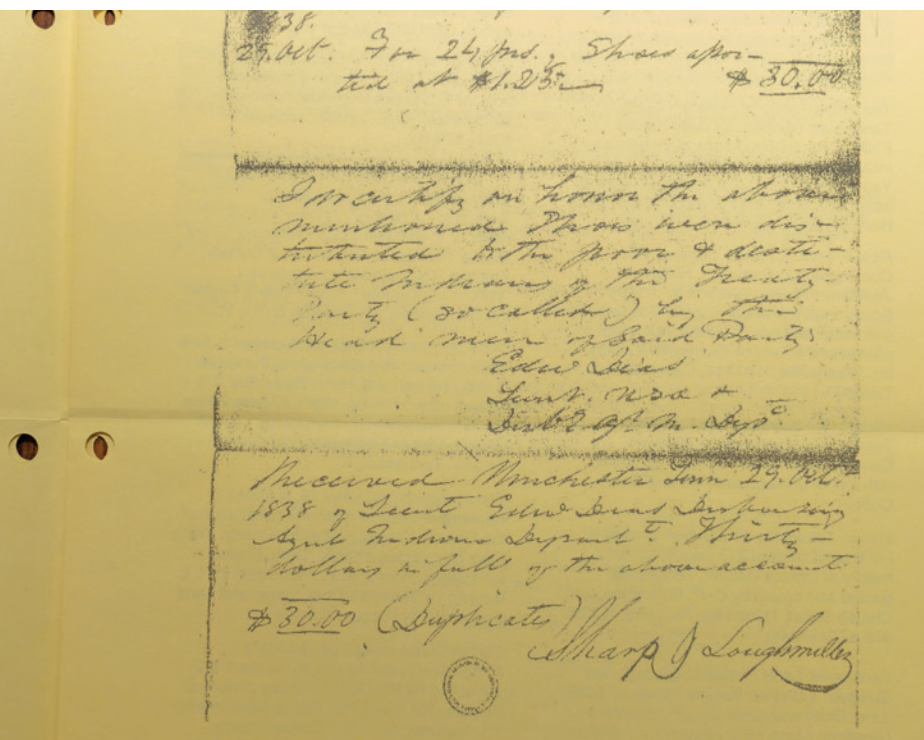 1838.
29. Oct. For 24, prs. Shoes assor-
ted at $1.25 $30.00
I do certify on honor the above
mentioned Shoes were dis-
tributed to the poor & desti-
tute Indians of the Treaty
Party (so called) by the
Head men of said Party.
Edw Deas
Lieut. USA &
Disbg Agt. In. Dept
Received Winchester Tenn 29. Oct.
1838 of Lieut Edw Deas Disbursing
Agent Indian Departt. Thirty-
dollars in full of the above account
$30.00 (Duplicates)
Sharp & Loughmiller